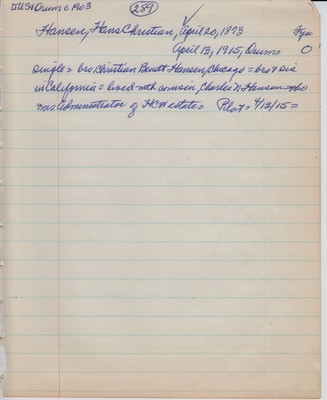 USA Orum c 1903 239
Hansen, Hans Christian, April 20, 1873 Fyn
April 13, 1915, Orum = O
single = bro, Christian Bendt Hansen, Chicago = bro & sis
in California = lived with cousin, Charles N Hansen who
was Administrator of HCH estate = Pilot = 4/13/15 =